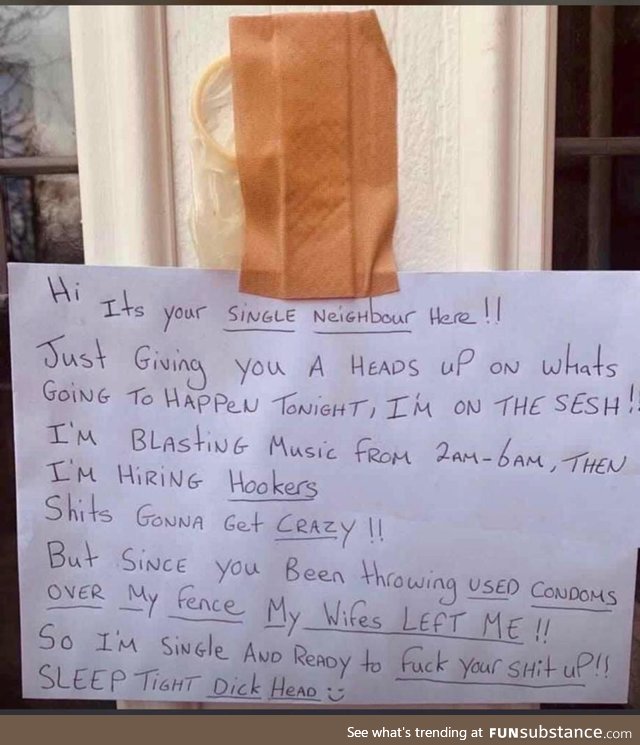 Hi
Its your SINGLE NeiGHbour Here!!
Just Giving you A HEADS uP ON whats
GOING TO HAPPEN TONIGHT, I'M ON THE SESH!!
I'M BLASTING Music FROM 2AM-6AM, THEN
I'M HiRiNG Hookers
Shits GONNA Get CRAZY!!
But SINCE you Been throwing USED CONDOMS
OVER My fence My Wifes LEFT ME!!
So I'M SiNGle AND ReADY to fuck your SHit uP!!
SLEEP TiGHT Dick HeAD :)
See what's trending at FUNsubstance.com